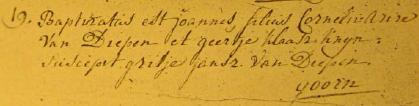 19. Baptizatus est Joannes filius Cornelii Arire
Van Diepen et geertje Klaasz Knyn
suscepit gritje Jansz. Van Diepen
goorn